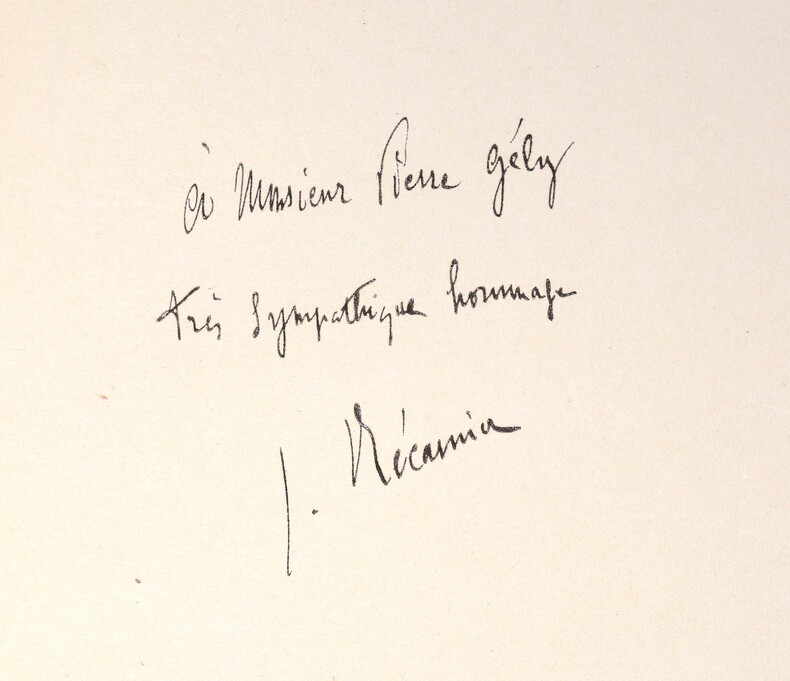 à Monsieur Pierre Gély
très sympathique hommage
J. Récamier